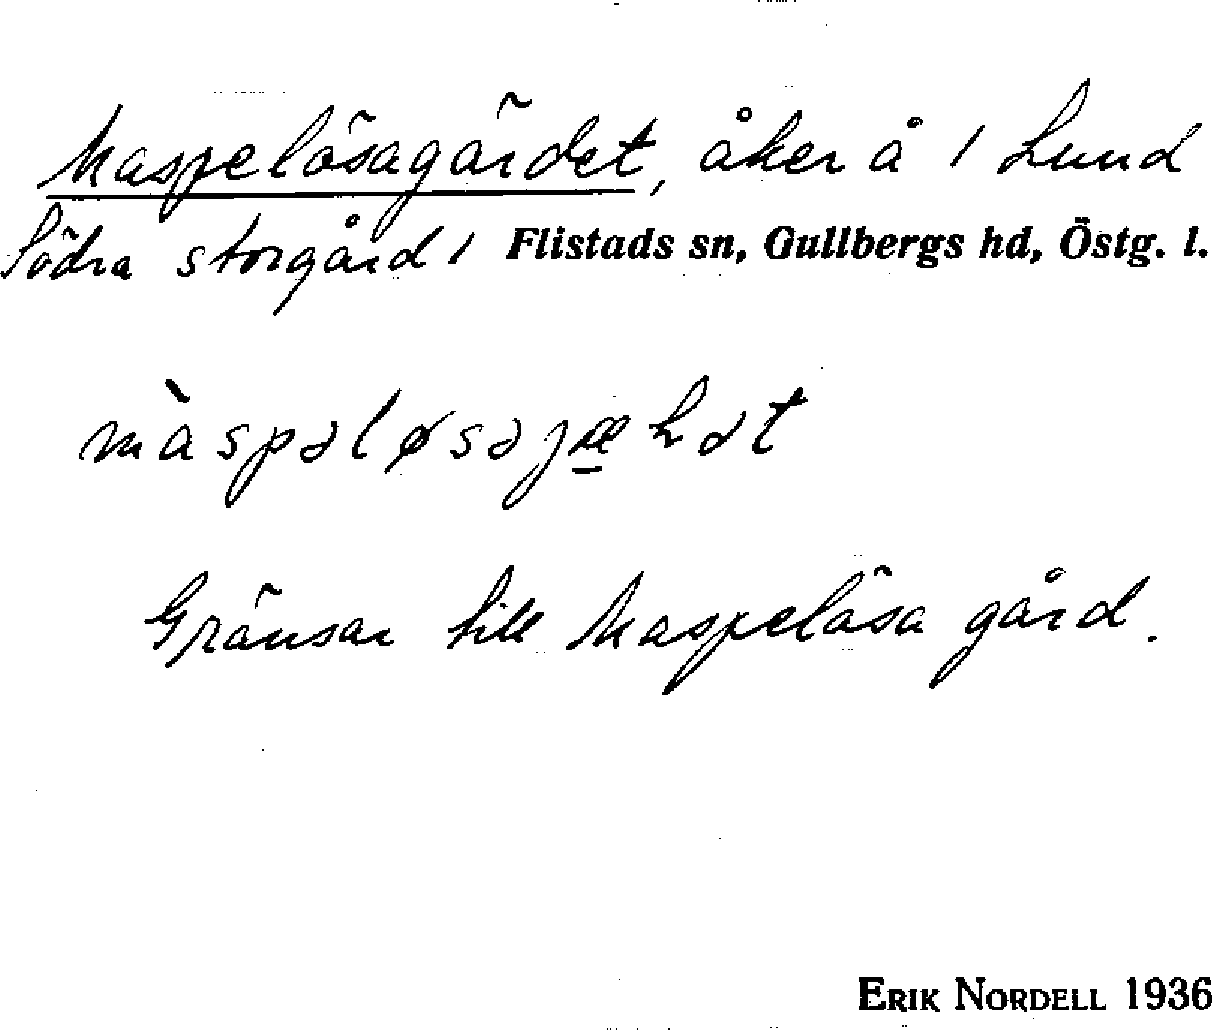 Maspelösagärdet, åker å 1 Lund
Södra storgård 1 Flistads sn, Gullbergs hd, Östg. l.
màspəløsəjæhət
Gränsar till Maspelösa gård.
ERIK NORDELL 1936